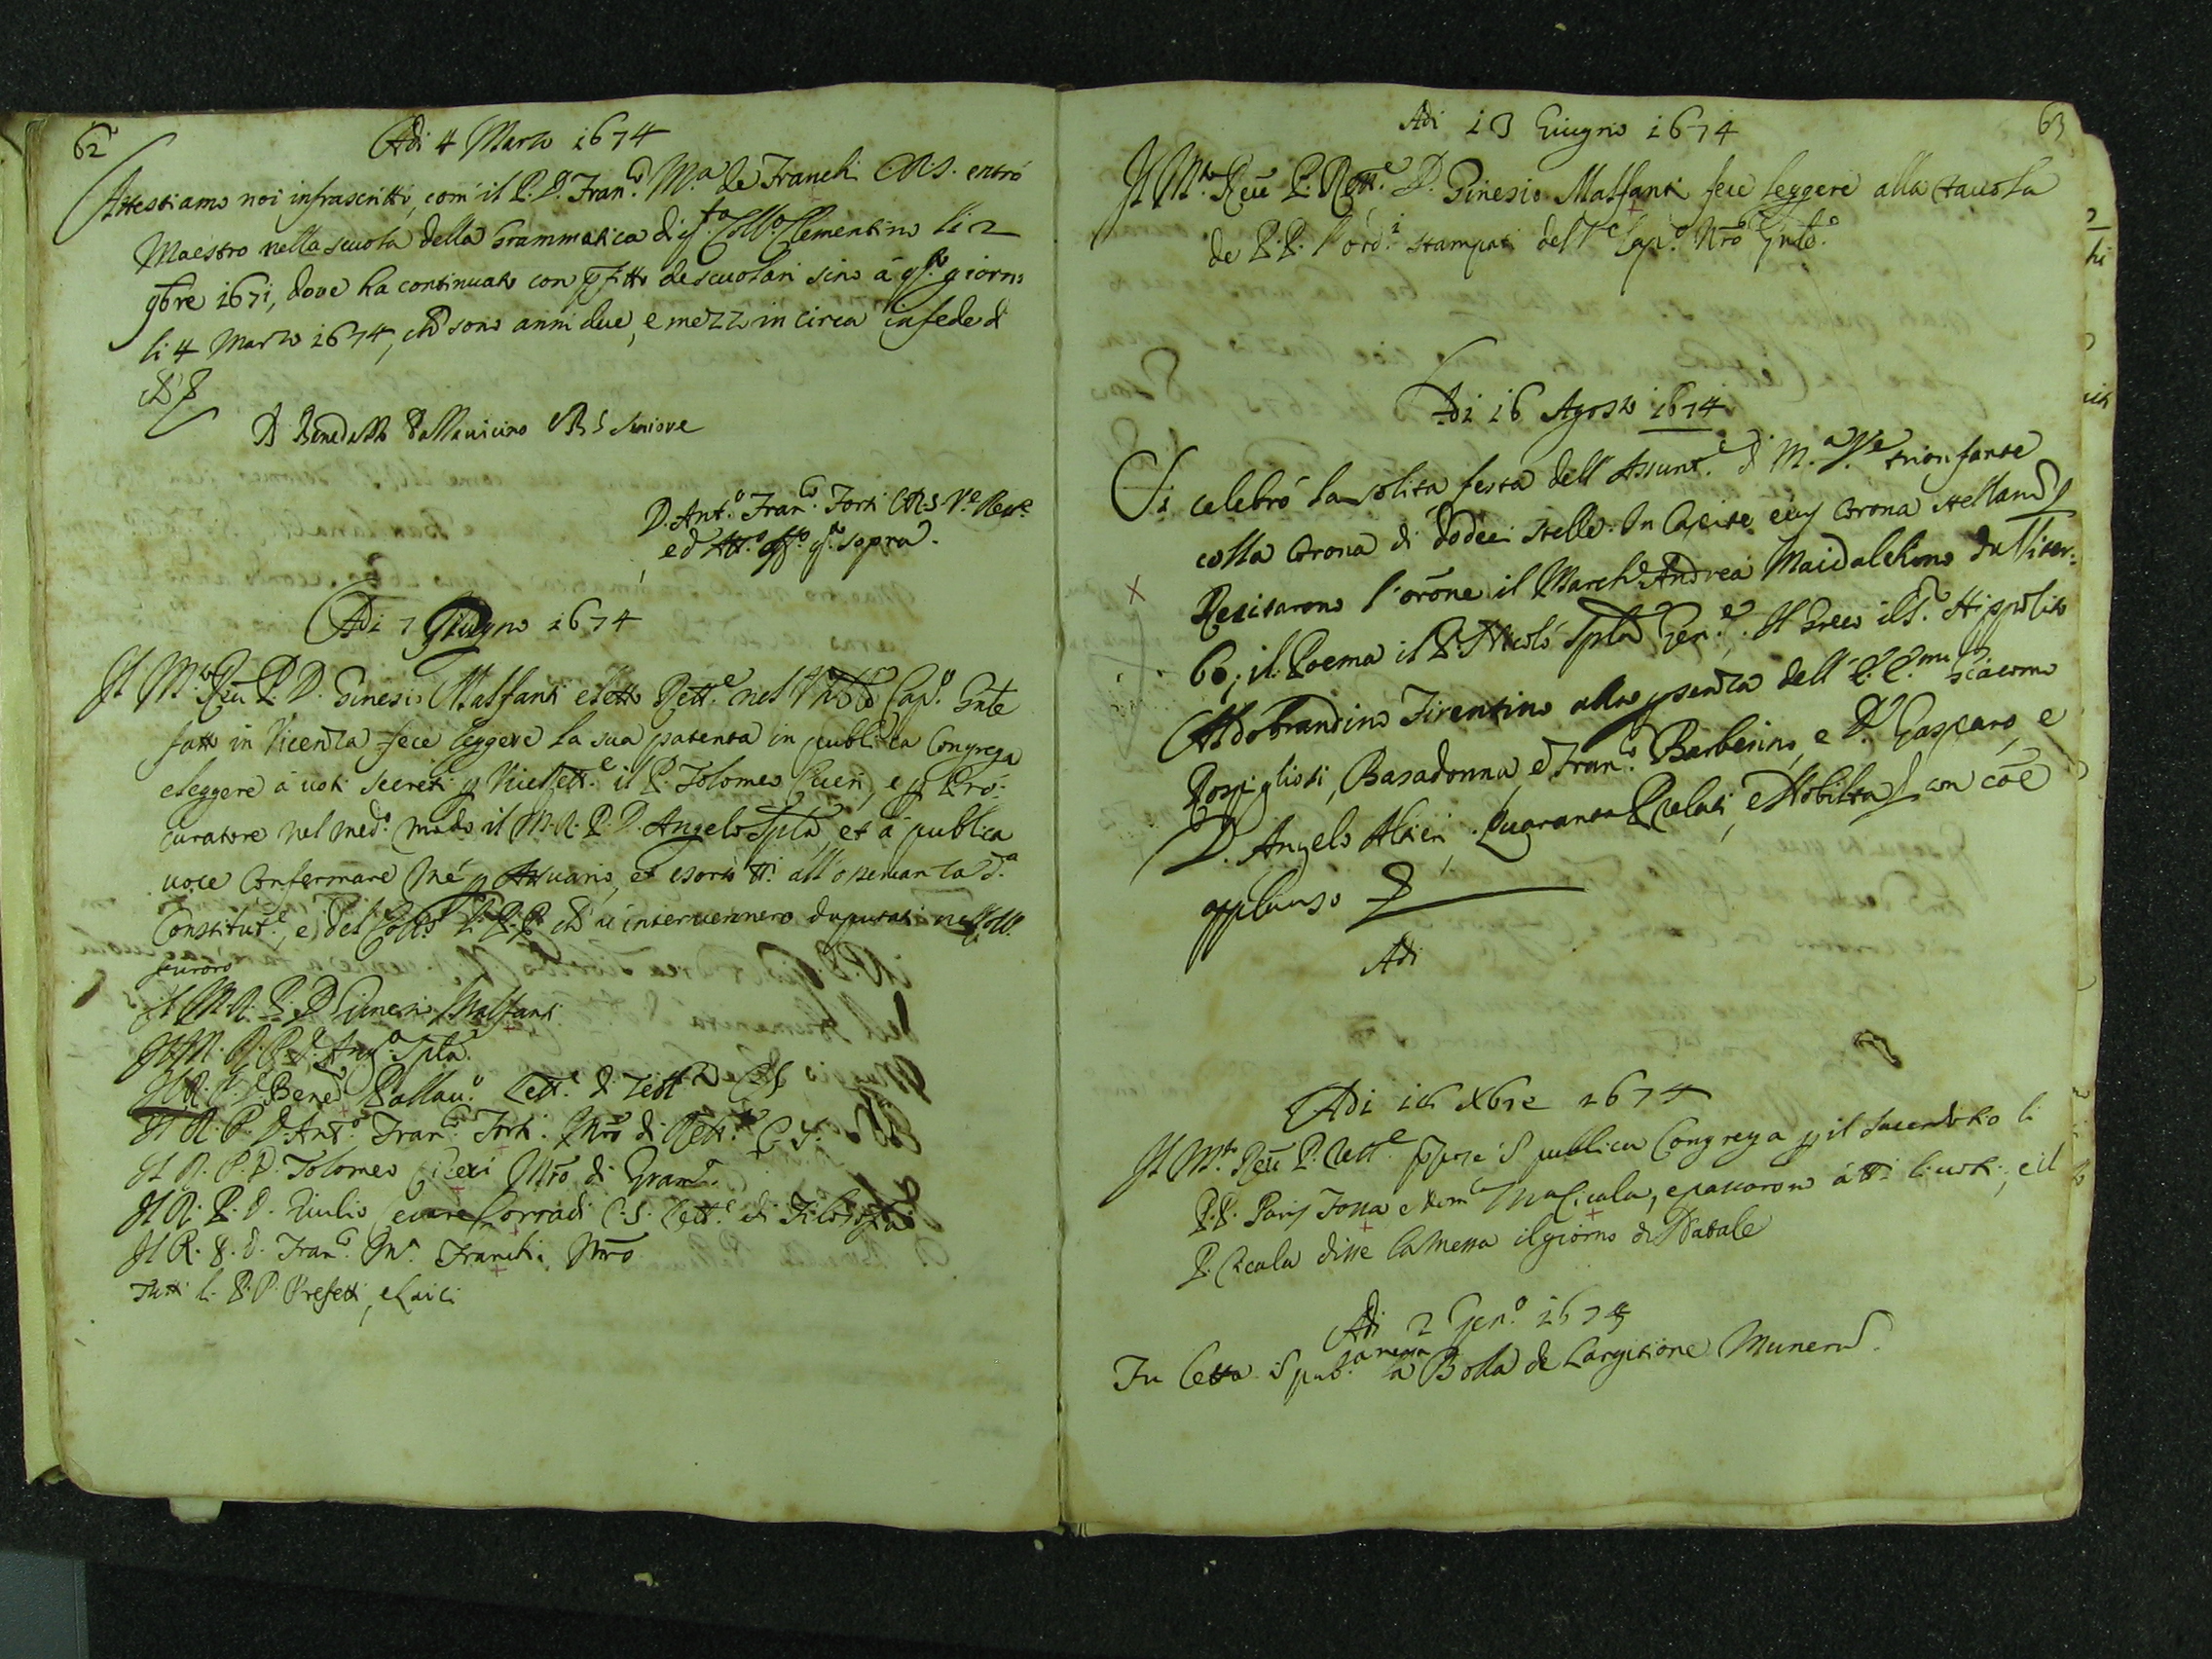 62
Adi 4 Marzo 1674
Attestiamo noi infrascritti, com'il P. D. Fran.co M.a de Franchi C.R.S. entrò
Maestro nella scuola della Grammatica di q.sto Coll.o Clementino li 2
9bre 1671, dove ha continuato con pfitto de scuolari sino à q.sto giorno
li 4 Marzo 1674, ch sono anni due, e mezz in circa in fede d
ch &
D. Benedetto Pallavicino CRS Seniore
D. Ant.o Fran.co Forti C.R.S. V.e Rett.e
ed Att.o aff.o q.to sopra.
Adi 7 Giugno 1674
Il M.to Reu P. D. Ginesio Malfanti eletto Rett.e nel Cap.o Gnle
fatto in Vicenza fece leggere la sua patenta in publica Congrega
eleggere à uoti secreti p ViceRett.e il P. Tolomeo Ciceri, e p Pro-
curatore nel med.o modo il M.R.P.D. Angelo Spla, et à publica
uoce confermare mé p Attuario, et esortò tti all'osservanza d.a
Constitut.e, e del Coll.o I P.P. ch u'interuennero deputati nell'
furoro
Il M.R.P.D. Ginesio Malfanti
Il M.R.P.D. Ang.o Spla.
Il R.P.D. Bened.o Pallau.o Lett.e di CS
Il R.P.D. Ant.o Fran.co Forti. Mro di Rett.ca C.S.
Il R.P.D. Tolomeo Ciceri Mro di Gram.a
Il R.P.D. Giulio Cesare Corradi C.S. Lett.e di Filosofia
Il R.P.D. Fran.co M.a Franchi. Mro
Tutti li P.P. Prefetti, e Laici
63
Adi 13 Giugno 1674
Il M.to Reu P. Rett.e D. Ginesio Malfanti fece leggere alla tauola
de P.P. l'ord.i stampati del Cap.o Nro Gnle.
Adi 16 Agosto 1674
Si celebrò la solita festa dell'Assunt.e di M.a V.e trionfante
colla corona di dodeci stelle. In Capite eius corona stellarum
Recitarono l'orõne il March.e Andrea Maidalchino da Viter-
bo; il Poema il P. Nicolò Spla Gen.e. Il Greco il S. Hippolito
Aldobrandino Firentino alla psenza dell' E.E.mi Giacomo
Rospigliosi, Basadonna, e Fran.co Barberino, e D. Gasparo, e
D. Angelo Altieri, Quaranta Prelati, e Nobiltà con cõe
applauso
Adi
Adi 16 Xbre 1674
Il M.to Reu P. Rett.e ppose i publica Congrega p il sacerdotio li
P.P. Paris Fossa e Dom.co M.a Cicala, e passarono à tti li uoti, e il
P. Cicala disse la Messa il giorno di Natale
Adi 2 Gen.o 1675
Fu letta i pub.a mensa la Bolla de Largitione Munerum.